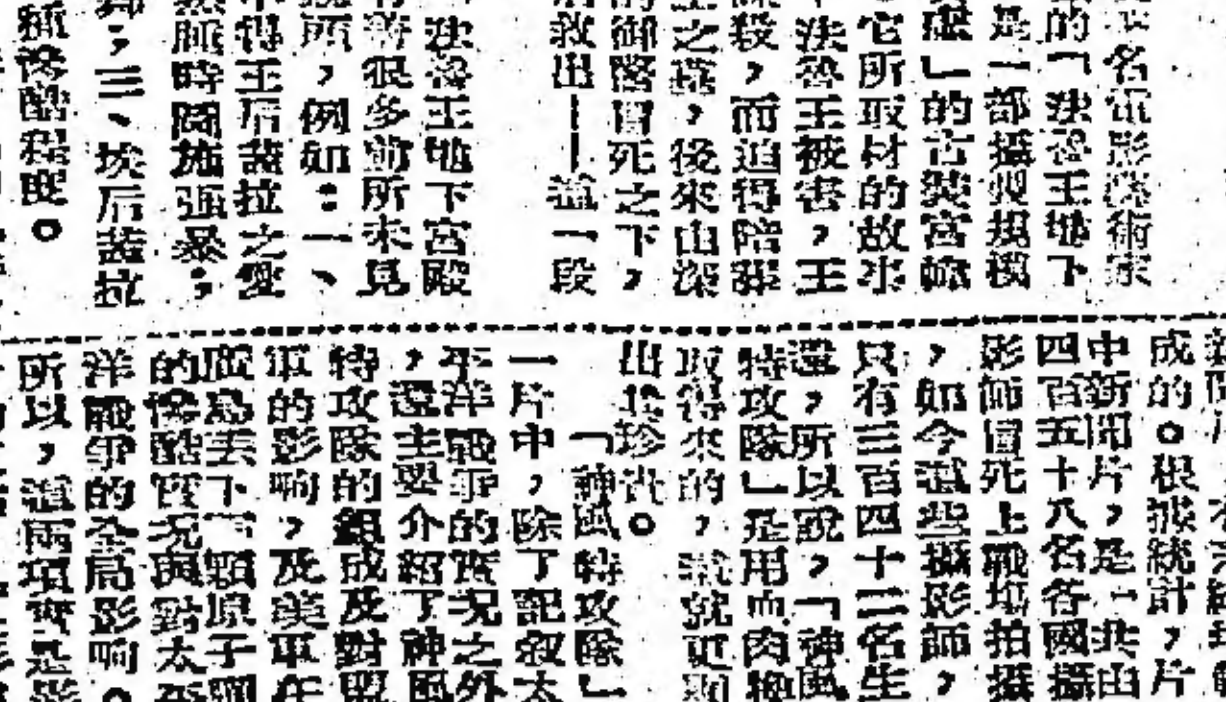 名電影藝術家
的「法魯王地下
是一部攝製規模
」的古裝宮幃
它所取材的故事
法魯王被害，王
殺，而迫得陪葬
之墓，後來由深
的御醫冒死之下，
救出——這一段
法魯王地下宮殿
有着很多前所未見
所，例如：一、
得王后蓋拉之愛
時間施強暴；
；三、埃后蓋拉
種慘酷程度。
成的。根據統計，片
中新聞片，是一共由
四百五十八名各國攝
影師冒死上戰場拍攝
，如今這些攝影師，
只有三百四十二名生
還，所以說，「神風
特攻隊」是用血肉換
取得來的，就更
出珍貴。
「神風特攻隊」
一片中，除了記叙太
平洋戰爭的實况之外
，還主要介紹了神風
特攻隊的組成及對盟
軍的影响，及美軍在
廣島丟下一顆原子彈
的慘酷實况與對太平
洋戰爭的全局影响。
所以，這兩項實是